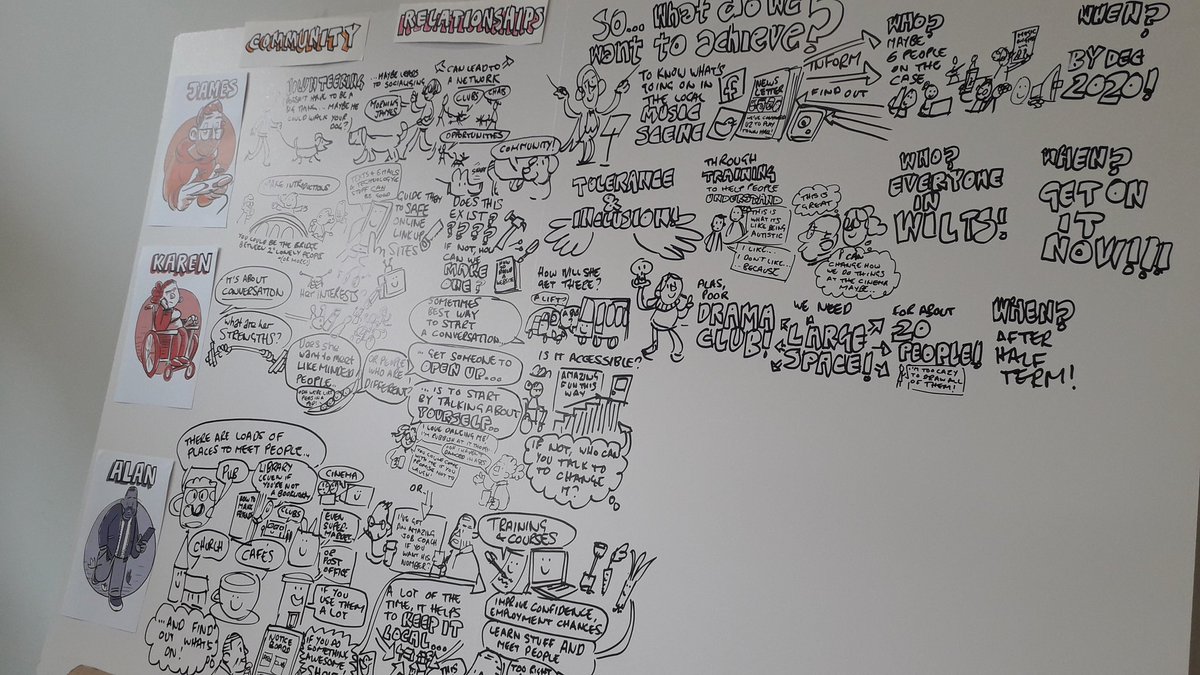 COMMUNITY
RELATIONSHIPS
SO... WHAT DO WE
WANT TO ACHIEVE?
JAMES
VOLUNTEERING
DOESN'T HAVE TO BE A
BIG THING... MAYBE HE
COULD WALK YOUR
DOG?
...MAYBE LEADS
TO SOCIALISING
MORNING
JAMES
CAN LEAD TO
A NETWORK
CLUBS
CHAT
OPPORTUNITIES
COMMUNITY!
MAKE INTRODUCTIONS
YOU COULD BE THE BRIDGE
BETWEEN 2 LONELY PEOPLE
(OR MORE)
TEXTS & EMAILS
& TECHNOLOGYG
STUFF CAN
BE GOOD
GUIDE THEM
TO SAFE
ONLINE
LINK UP
SITES
DOES THIS
EXIST?
????
IF NOT, HOW
CAN WE
MAKE
ONE?
TO KNOW WHAT'S
GOING ON IN
THE LOCAL
MUSIC
SCENE
NEWS
LETTER
INFORM
FIND OUT
WHO?
MAYBE
6 PEOPLE
ON THE
CASE
WHEN?
BY DEC
2020!
TOLERANCE
&
INCLUSION!
THROUGH
TRAINING
TO HELP PEOPLE
UNDERSTAND
THIS IS
WHAT IT'S
LIKE BEING
AUTISTIC
I LIKE...
I DON'T LIKE...
BECAUSE
THIS IS
GREAT
I CAN
CHANGE HOW
WE DO THINGS
AT THE CINEMA
MAYBE
WHO?
EVERYONE
IN
WILTS!
WHEN?
GET ON
IT
NOW!!!
KAREN
IT'S ABOUT
CONVERSATION
INTERESTS
WHAT ARE HER
STRENGTHS?
DOES SHE
WANT TO MEET
LIKE MINDED
PEOPLE...
OR PEOPLE
WHO ARE
DIFFERENT?
SOMETIMES
BEST WAY
TO START
A CONVERSATION...
... GET SOMEONE TO
OPEN UP...
... IS TO START
BY TALKING ABOUT
YOURSELF...
I LOVE DANCING ME!
I'M RUBBISH AT IT THOUGH
OR...
I'VE GOT
AN AMAZING
JOB COACH
IF YOU
WANT HIS
NUMBER?
HOW WILL SHE
GET THERE?
A LIFT?
IS IT ACCESSIBLE?
AMAZING
FUN THIS
WAY
IF NOT, WHO CAN
YOU TALK TO
TO CHANGE
IT?
ALAS,
POOR
DRAMA
CLUB!
WE NEED
A
LARGE
SPACE!
FOR ABOUT
20
PEOPLE!
I'M TOO LAZY
TO DRAW ALL
OF THEM!
WHEN?
AFTER
HALF
TERM!
ALAN
THERE ARE LOADS OF
PLACES TO MEET PEOPLE...
PUB
LIBRARY
(EVEN IF
YOU'RE NOT
A BOOKWORM)
HOW TO
MAKE
FRIENDS
CINEMA
CLUBS
EVEN
SUPER-
MARKET
CHURCH
CAFES
OR
POST
OFFICE
IF YOU
USE THEM
A LOT
...AND FIND
OUT WHAT'S
ON!
NOTICE
BOARD
IF YOU DO
SOMETHING
AWESOME
A LOT OF THE
TIME, IT HELPS
TO KEEP IT
LOCAL...
THIS
TRAINING
& COURSES
IMPROVE CONFIDENCE,
EMPLOYMENT CHANCES
LEARN STUFF AND
MEET PEOPLE
TOO RIGHT